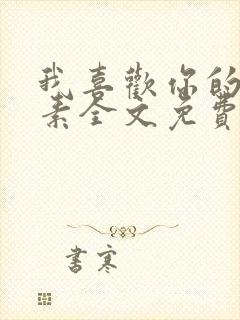 我喜歡你的
素全文免費
書寒